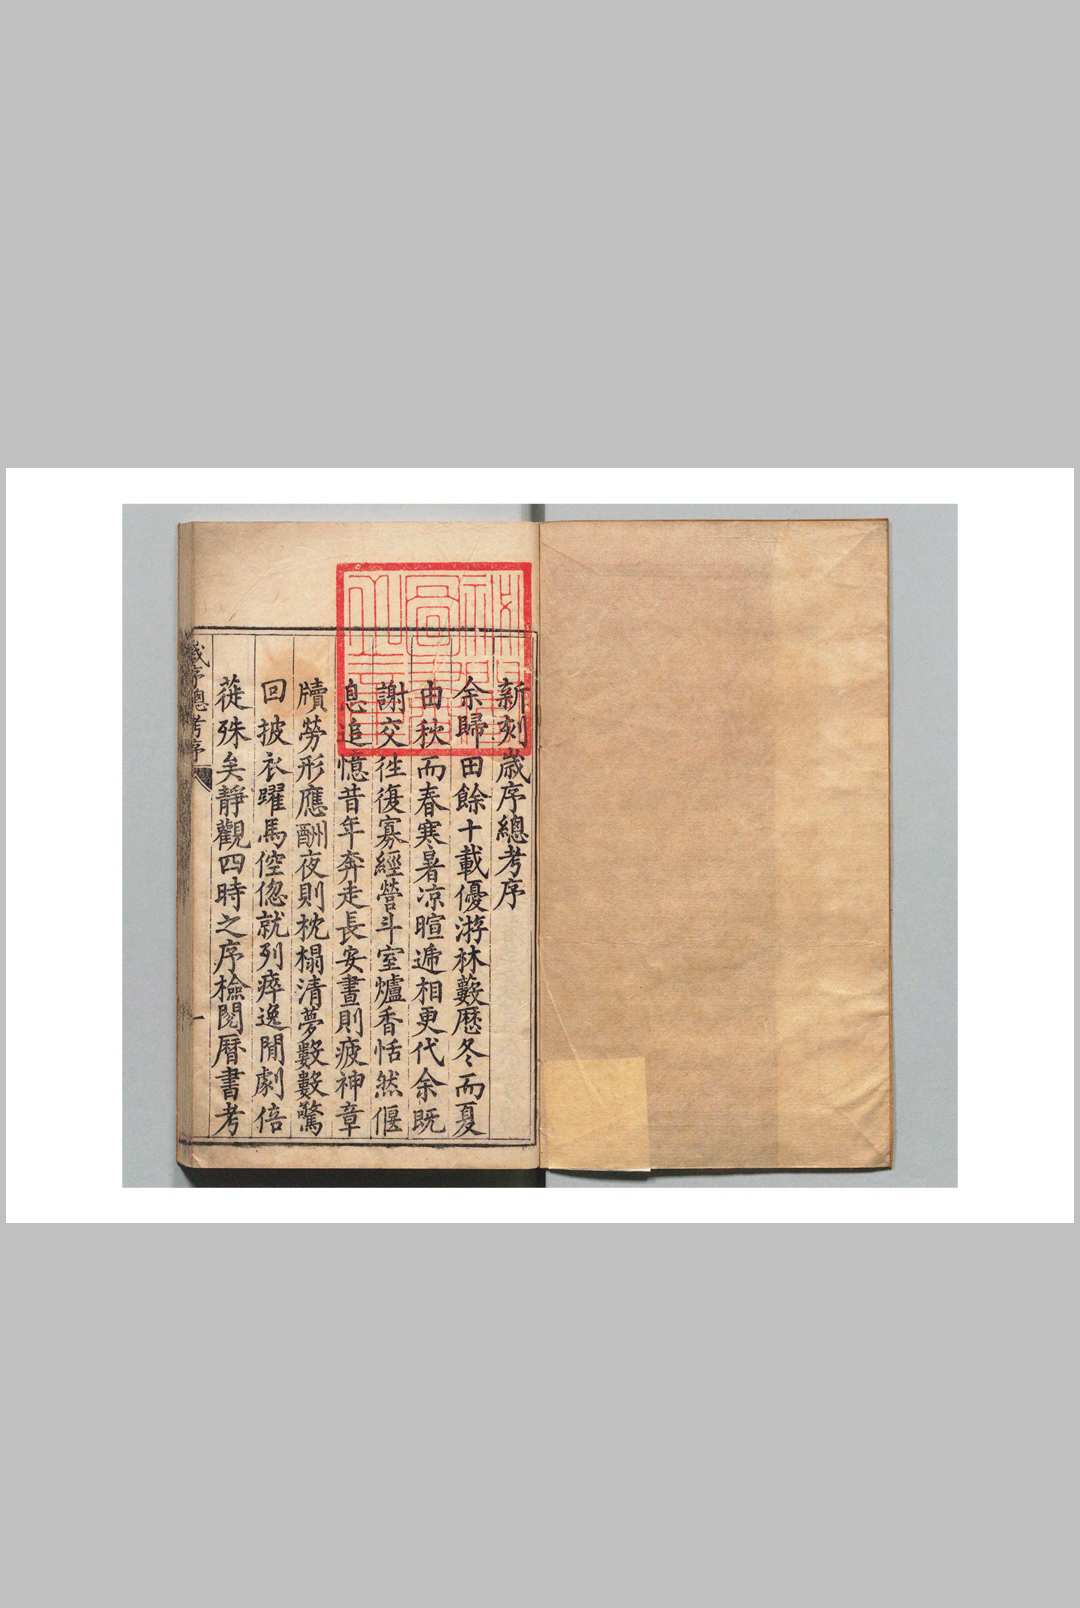 新刻歲序總考序
余歸田餘十載優游林藪歷冬而夏
由秋而春寒暑凉暄遞相更代余既
謝交徃復寡經營斗室爐香恬然偃
息追憶昔年奔走長安晝則疲神章
牘勞形應酬夜則枕榻清夢數數驚
回披衣躍馬倥傯就列瘁逸閒劇倍
蓰殊矣靜觀四時之序檢閱曆書考
歲序總考序
一